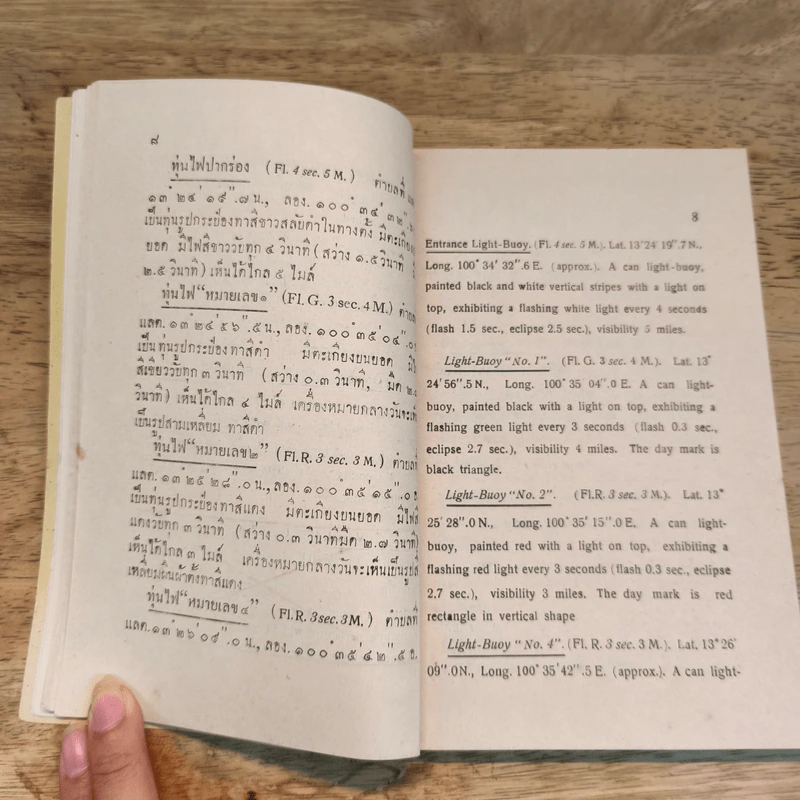 ๘
ทุ่นไฟปากร่อง (Fl. 4 sec. 5 M.) ตำบลที่
๑๓° ๒๔′ ๑๙″.๗ น., ลอง. ๑๐๐° ๓๔′ ๓๒″.
เป็นทุ่นรูปกระป๋องทาสีขาวสลับดำในทางตั้ง มีตะเกียง
ยอด มีไฟสีขาววับทุก ๔ วินาที (สว่าง ๑.๕ วินาที
๒.๕ วินาที) เห็นได้ไกล ๕ ไมล์
ทุ่นไฟ “หมายเลข๑” (Fl. G. 3 sec. 4 M.)
แลต. ๑๓° ๒๔′ ๕๖″.๕ น., ลอง. ๑๐๐° ๓๕′ ๐๔″.๐
เป็นทุ่นรูปกระป๋องทาสีดำ มีตะเกียงบนยอด
สีเขียววับทุก ๓ วินาที (สว่าง ๐.๓ วินาที, มืด ๒.
วินาที) เห็นได้ไกล ๔ ไมล์ เครื่องหมายกลางวันจะเห็น
เป็นรูปสามเหลี่ยม ทาสีดำ
ทุ่นไฟ “หมายเลข๒” (Fl. R. 3 sec. 3 M.) ตำบลที่
แลต. ๑๓° ๒๕′ ๒๘″.๐ น., ลอง. ๑๐๐° ๓๕′ ๑๕″.๐
เป็นทุ่นรูปกระป๋องทาสีแดง มีตะเกียงบนยอด มีไฟสี
แดงวับทุก ๓ วินาที (สว่าง ๐.๓ วินาทีมืด ๒.๗ วินาที)
เห็นได้ไกล ๓ ไมล์ เครื่องหมายกลางวันจะเห็นเป็นรูปสี่
เหลี่ยมผืนผ้าตั้งทาสีแดง
ทุ่นไฟ “หมายเลข๔” (Fl. R. 3 sec. 3 M.) ตำบลที่
แลต. ๑๓° ๒๖′ ๐๙″.๐ น., ลอง. ๑๐๐° ๓๕′ ๔๒″.๕ อ.
8
Entrance Light-Buoy. (Fl. 4 sec. 5 M.). Lat. 13° 24′ 19″.7 N.,
Long. 100° 34′ 32″.6 E. (approx.). A can light-buoy,
painted black and white vertical stripes with a light on
top, exhibiting a flashing white light every 4 seconds
(flash 1.5 sec., eclipse 2.5 sec.), visibility 5 miles.
Light-Buoy “No. 1”. (Fl. G. 3 sec. 4 M.). Lat. 13°
24′56″.5 N., Long. 100° 35 04″.0 E. A can light-
buoy, painted black with a light on top, exhibiting a
flashing green light every 3 seconds (flash 0.3 sec.,
eclipse 2.7 sec.), visibility 4 miles. The day mark is
black triangle.
Light-Buoy “No. 2”. (Fl.R. 3 sec. 3 M.). Lat. 13°
25′28″.0 N., Long. 100° 35′ 15″.0 E. A can light-
buoy, painted red with a light on top, exhibiting a
flashing red light every 3 seconds (flash 0.3 sec., eclipse
2.7 sec.), visibility 3 miles. The day mark is red
rectangle in vertical shape
Light-Buoy “No. 4”. (Fl. R. 3 sec. 3 M.). Lat. 13° 26′
09″.0N., Long. 100° 35′42″.5 E. (approx.). A can light-